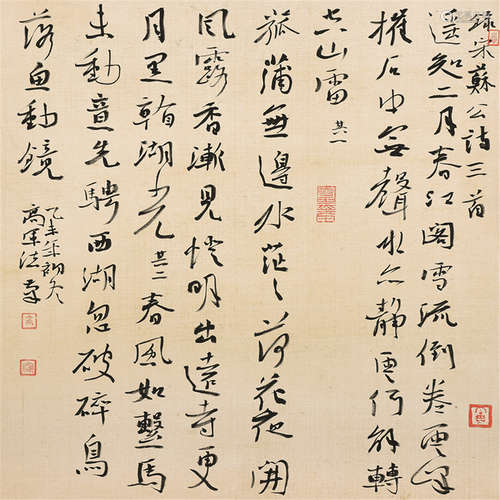 錄宋蘇公詩三首
遥知二月春江闊雪浪倒卷雲峰
摧石中無聲水亦静雲何解轉
空山雷 其一
菰蒲無邊水茫々荷花夜開
風露香漸見燈明出遠寺更
月黑看湖光 其二 春風如繫馬
未動意先騁西湖忽破碎鳥
落魚動鏡
乙未年初冬
高軍法書